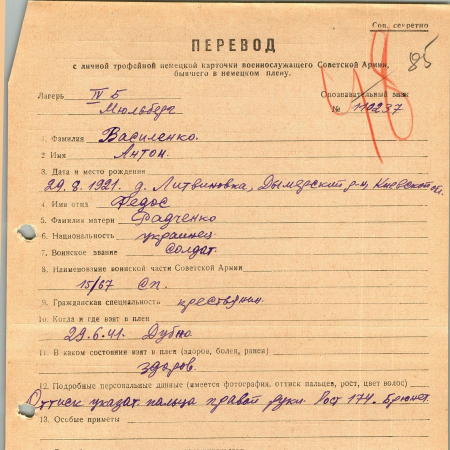 Сов. секретно
85
ПЕРЕВОД
с личной трофейной немецкой карточки военнослужащего Советской Армии,
бывшего в немецком плену.
Лагерь IV Б Опознавательный знак
Мюльберг № 110237
1. Фамилия Василенко.
2 Имя Антон.
3. Дата и место рождения
29.8.1921. д. Литвиновка, Дымерский р-н, Киевской об.
4. Имя отца Федос
5. Фамилия матери Фадченко
6. Национальность украинец
7. Воинское звание солдат.
8. Наименование воинской части Советской Армии
15/67 Сп.
9. Гражданская специальность крестьянин.
10. Когда и где взят в плен
29.6.41. Дубно
11. В каком состоянии взят в плен (здоров, болен, ранен)
здоров.
12. Подробные персональные данные (имеется фотография, оттиск пальцев, рост, цвет волос)
Оттиск указат. пальца правой руки. Рост 174. Брюнет.
13. Особые приметы